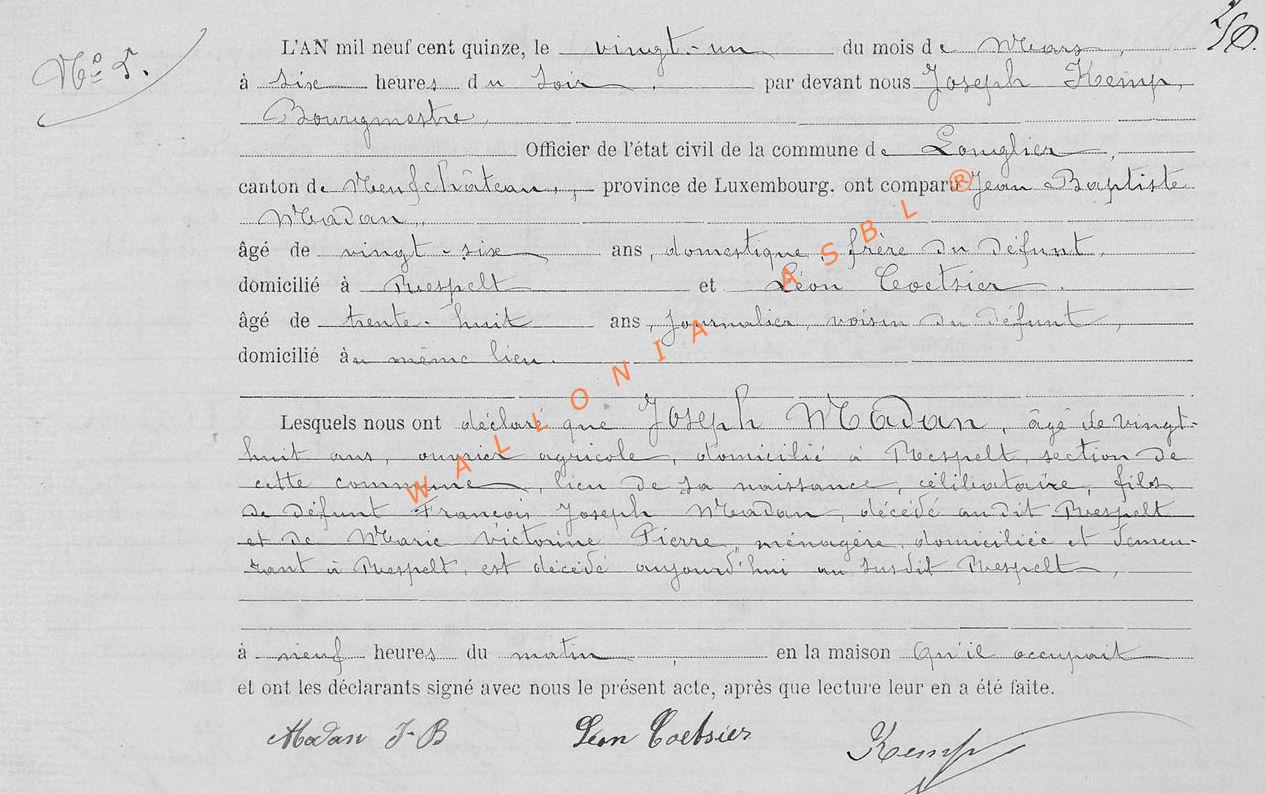 N° 5.
L'AN mil neuf cent quinze, le vingt-un du mois de Mars,
à six heures du soir, par devant nous Joseph Kemp,
Bourgmestre,
Officier de l'état civil de la commune de Longlier,
canton de Neufchâteau, province de Luxembourg. ont comparu Jean Baptiste
Madan,
âgé de vingt-six ans, domestique, frère du défunt,
domicilié à Respelt et Léon Coetsier.
âgé de trente-huit ans, journalier, voisin du défunt,
domicilié au même lieu.
Lesquels nous ont déclaré que Joseph Madan, âgé de vingt-
huit ans, ouvrier agricole, domicilié à Respelt, section de
cette commune, lieu de sa naissance, célibataire, fils
de défunt François Joseph Madan, décédé audit Respelt
et de Marie Victorine Pierre, ménagère, domiciliée et demeu-
rant à Respelt, est décédé aujourd'hui au susdit Respelt,
à neuf heures du matin, en la maison qu'il occupait
et ont les déclarants signé avec nous le présent acte, après que lecture leur en a été faite.
Madan J-B Léon Coetsier Kemp
WALLONIA ASBL ®